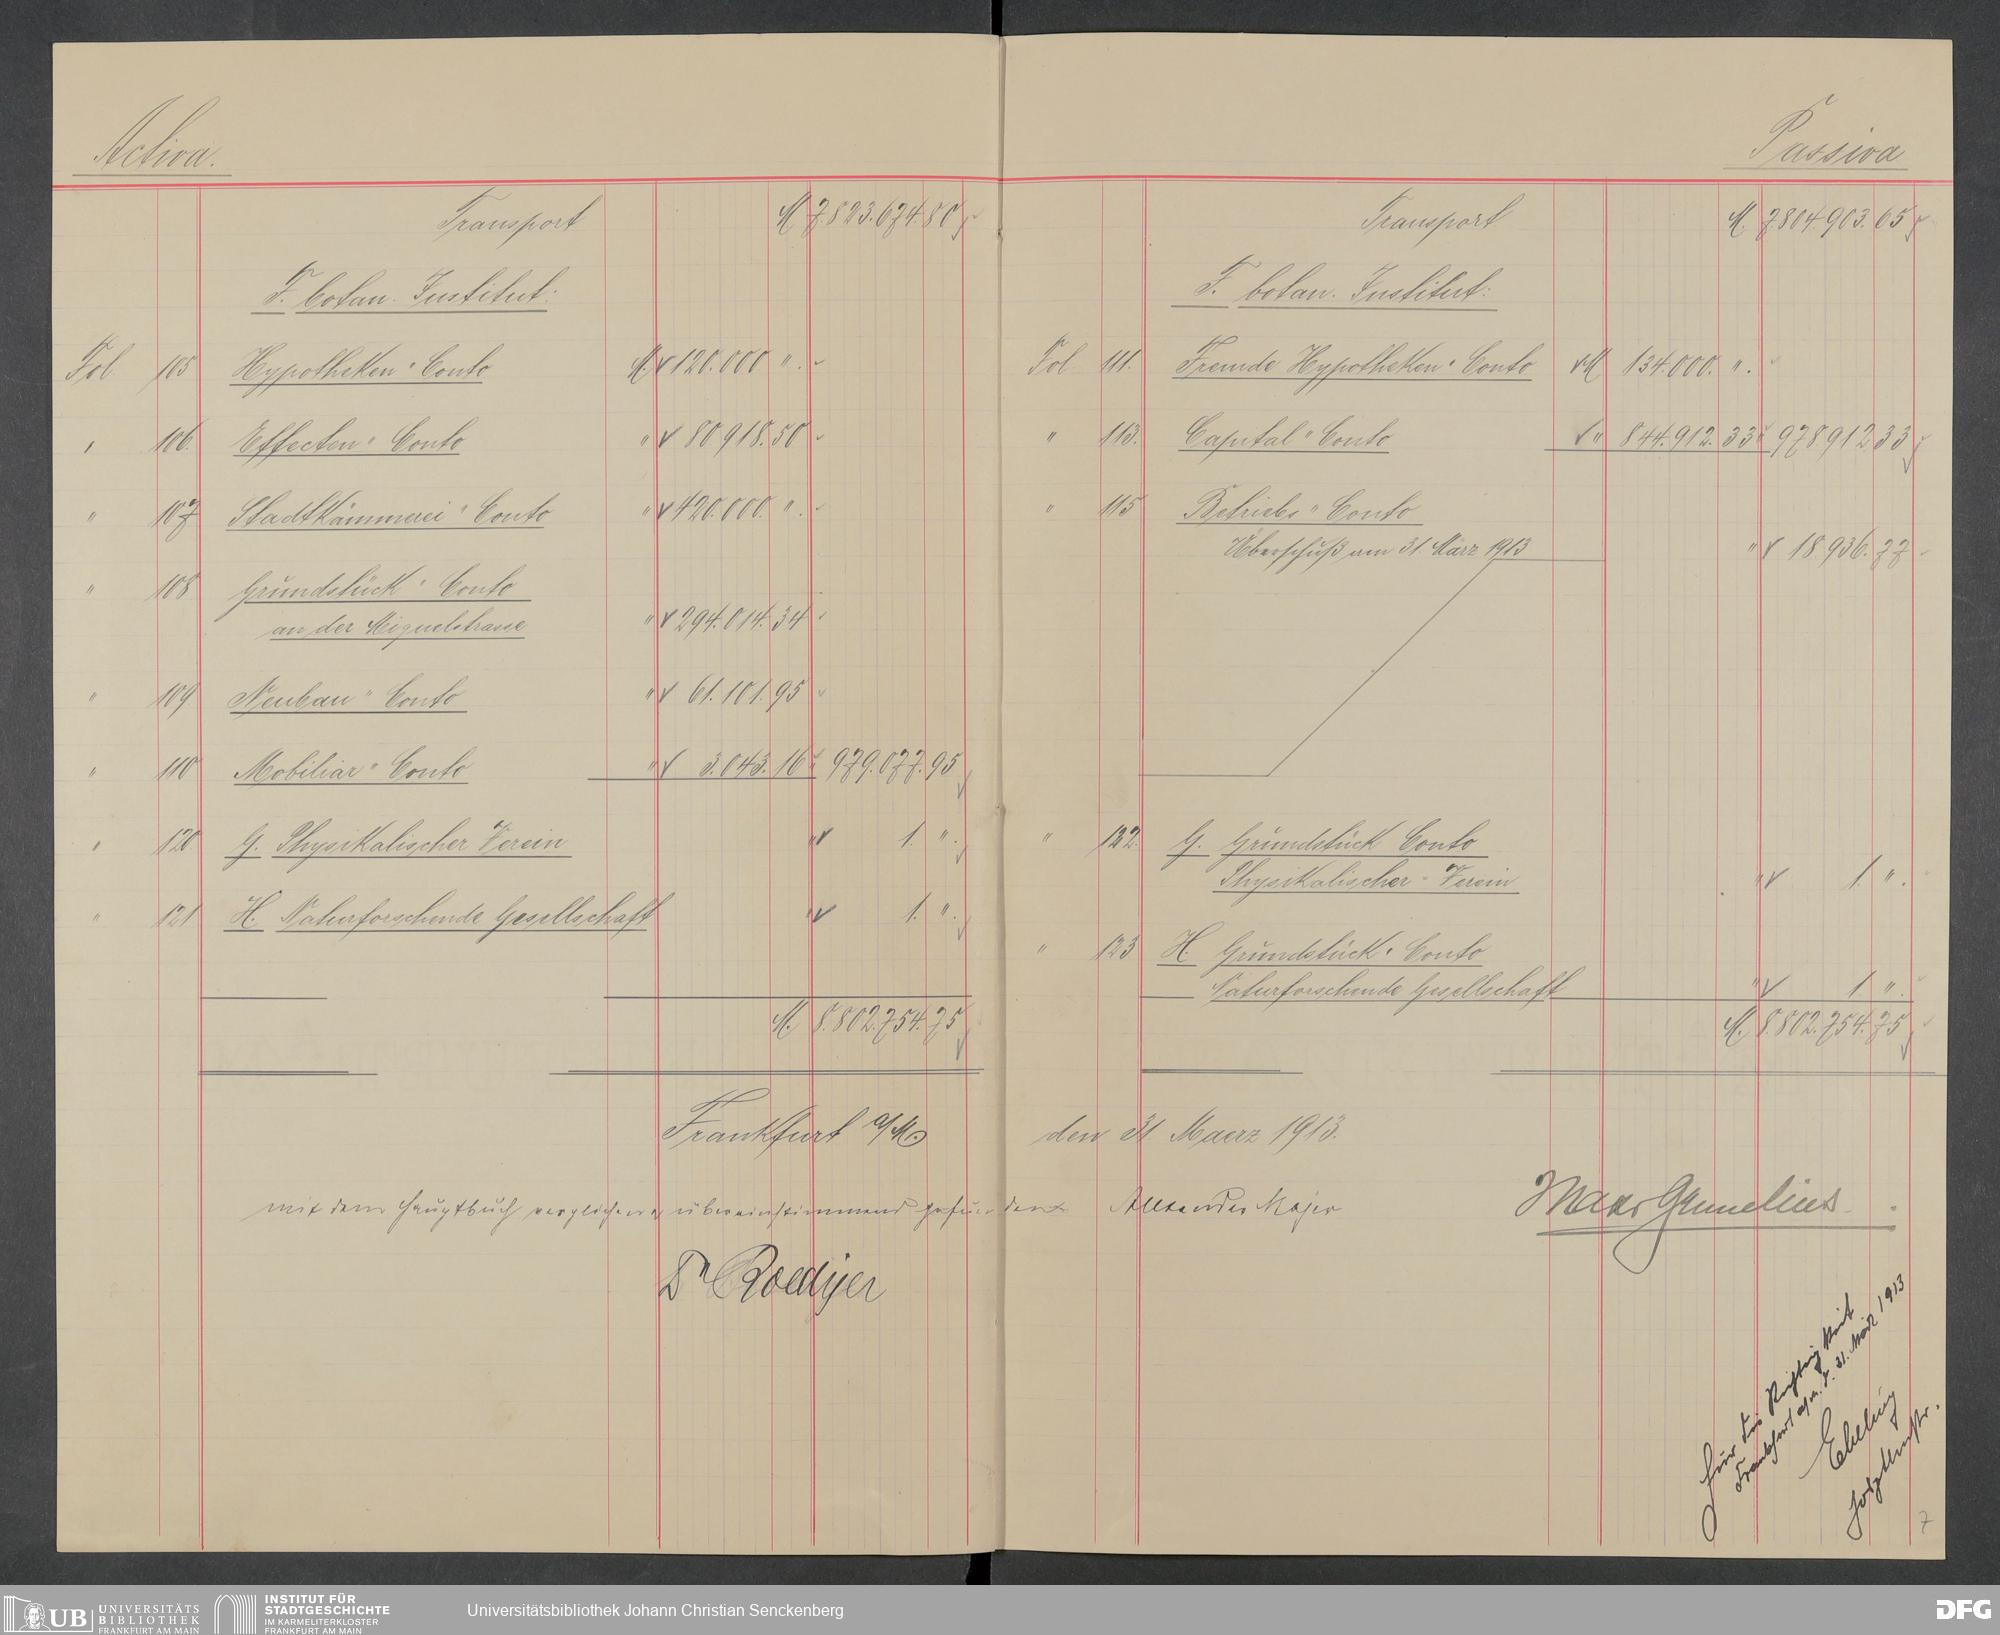 Activa.
Transport M 7.823.674.80
F. botan. Institut:
Fol 105 Hypotheken " Conto M. 120.000 " .
" 106. Effecten " Conto " 80918.50
" 107 Stadtkämmerei " Conto " 420.000. " .
" 108 Grundstück " Conto
an der Miquelstrasse " 294.014.34
" 109 Neubau " Conto " 61.101.95
" 110 Mobiliar " Conto " 3.043.16 " 979.077.95
" 120 G. Physikalischer Verein " 1. " .
" 121 H. Naturforschende Gesellschaft " 1. " .
M. 8.802.754.75
Frankfurt a/M.
mit dem Hauptbuch verglichen & übereinstimmend gefunden
Dr Roediger
Passiva
Transport M. 7804.903.65
F. botan. Institut:
Fol 111. Fremde Hypotheken " Conto M 134.000. " .
" 113. Capital " Conto " 844.912.33 " 978912.33
" 115 Betriebs " Conto
Überschuß am 31 März 1913 " 18.936.77
" 122. G. Grundstück Conto
Physikalischer " Verein " 1. " .
" 123 H. Grundstück " Conto
Naturforschende Gesellschaft " 1 " .
M. 8.802.754.75
den 31 Maerz 1913.
Alexander Majer
Max Grunelius
Für die Richtigkeit
Frankfurt a/M. d. 31. März 1913
Ebeling
7
UB UNIVERSITÄTS
BIBLIOTHEK
FRANKFURT AM MAIN
INSTITUT FÜR
STADTGESCHICHTE
IM KARMELITERKLOSTER
FRANKFURT AM MAIN
Universitätsbibliothek Johann Christian Senckenberg
DFG